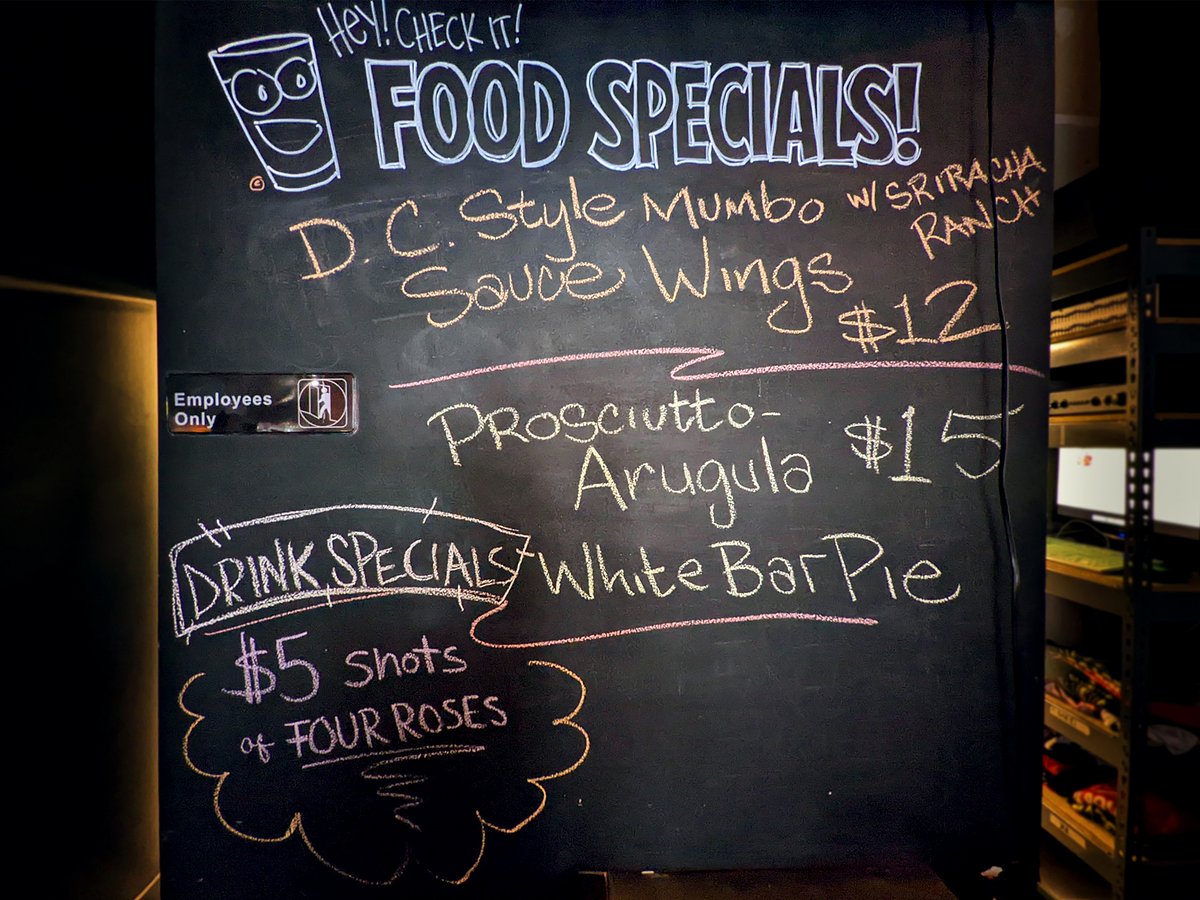 Hey! CHECK IT!
FOOD SPECIALS!
D.C. Style Mumbo
Sauce Wings
W/SRIRACHA
RANCH
$12
Prosciutto-
Arugula
$15
White Bar Pie
Employees
Only
DRINK SPECIALS
$5 shots
of FOUR ROSES